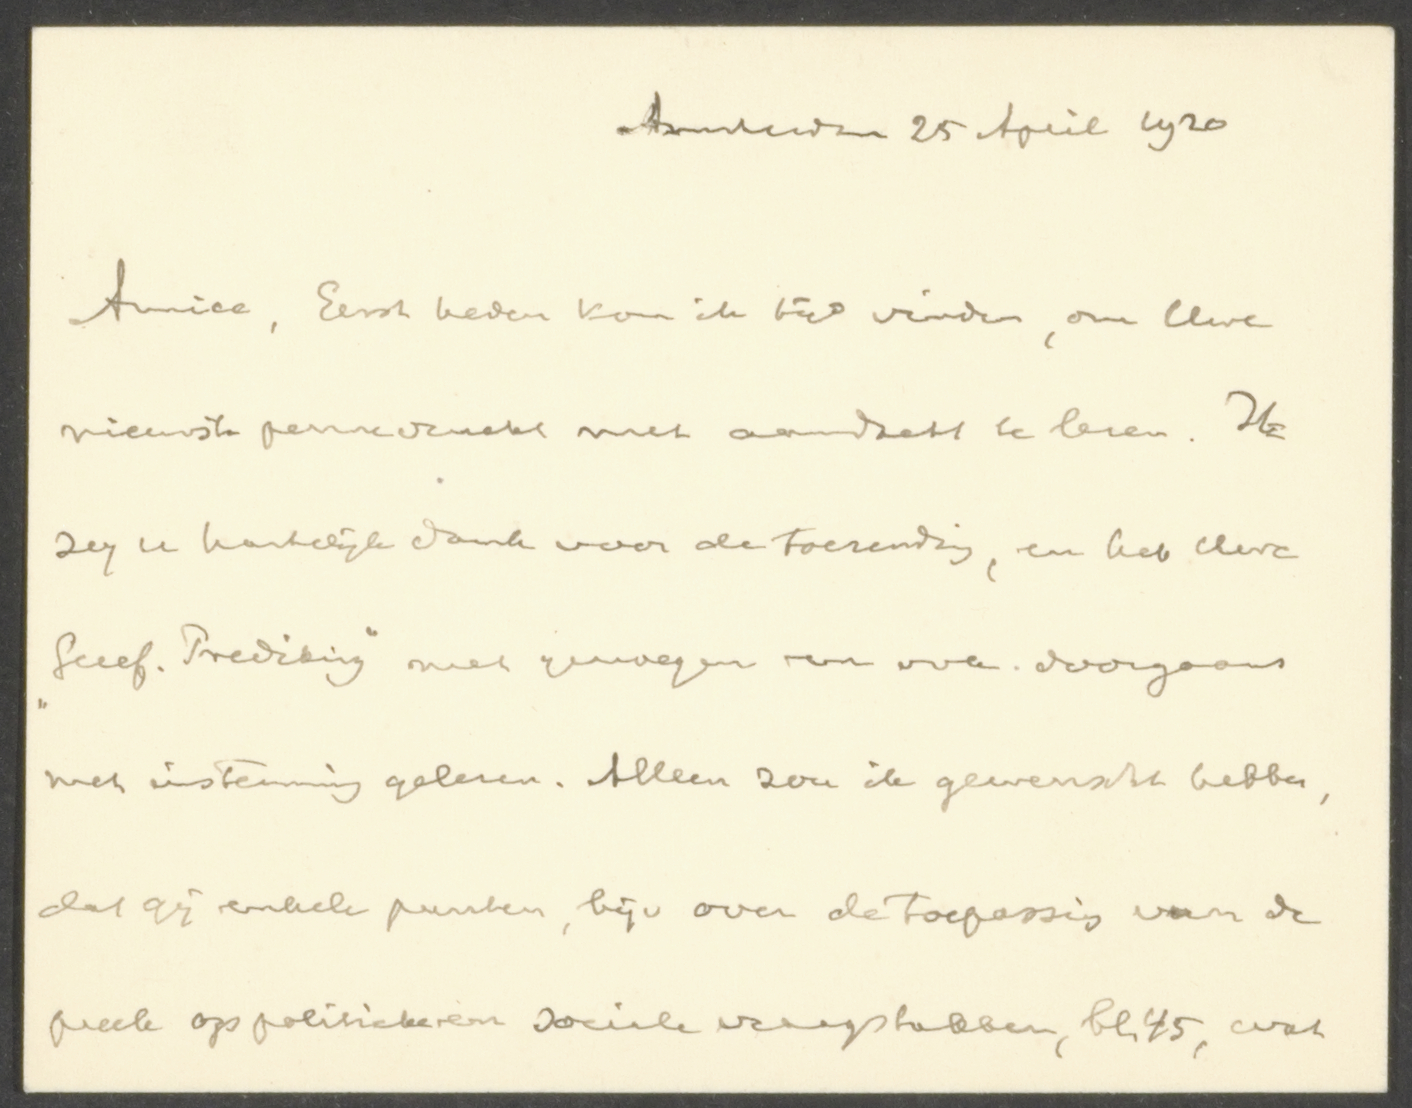 Amsterdam 25 April 1920
Amice, Eerst heden kon ik tijd vinden, om Uwe
nieuwste pennevrucht met aandacht te lezen. Ik
zeg u hartelijk dank voor de toezending, en heb Uwe
"Geref. Prediking" met genoegen en ook doorgaans
met instemming gelezen. Alleen zou ik gewenscht hebben,
dat gij enkele punten, bijv over de toepassing van de
preek op politieke en sociale vraagstukken, bl. 45, wat